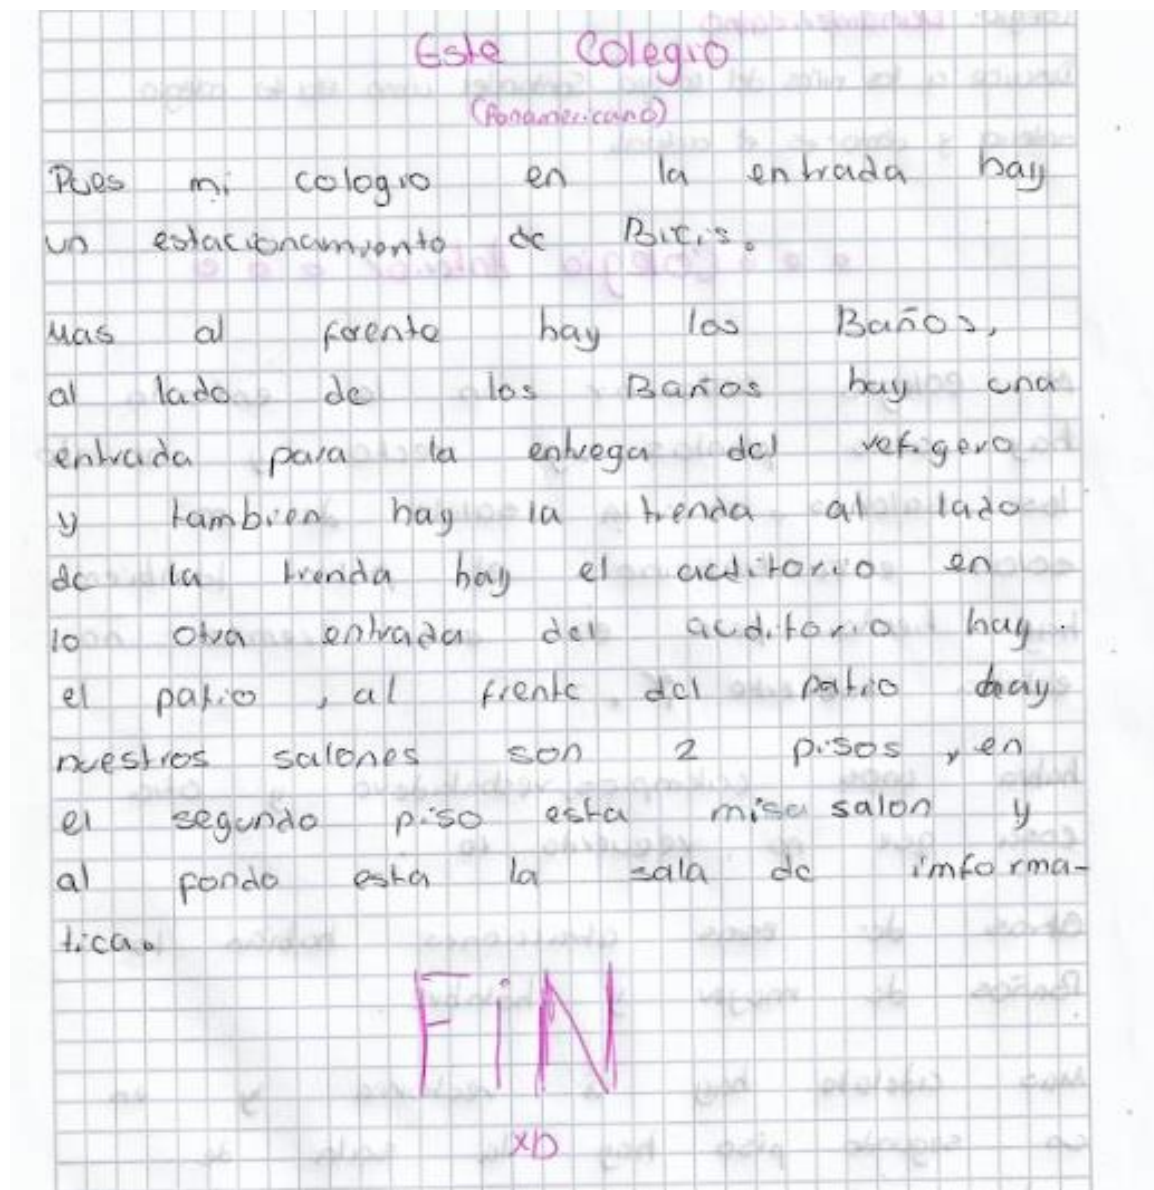 Este Colegio
(Panamericano)
Pues mi cologio en la entrada hay
un estacionamiento de Bicis.
Mas al frente hay los Baños,
al lado de los Baños hay una
entrada para la entrega del refigero
y tambien hay la tienda al lado
de la tienda hay el auditorio en
lo otra entrada del auditorio hay
el patio, al frente del patio hay
nuestros salones son 2 pisos, en
el segundo piso esta mi salon y
al fondo esta la sala de imforma-
tica.
FiN
xD